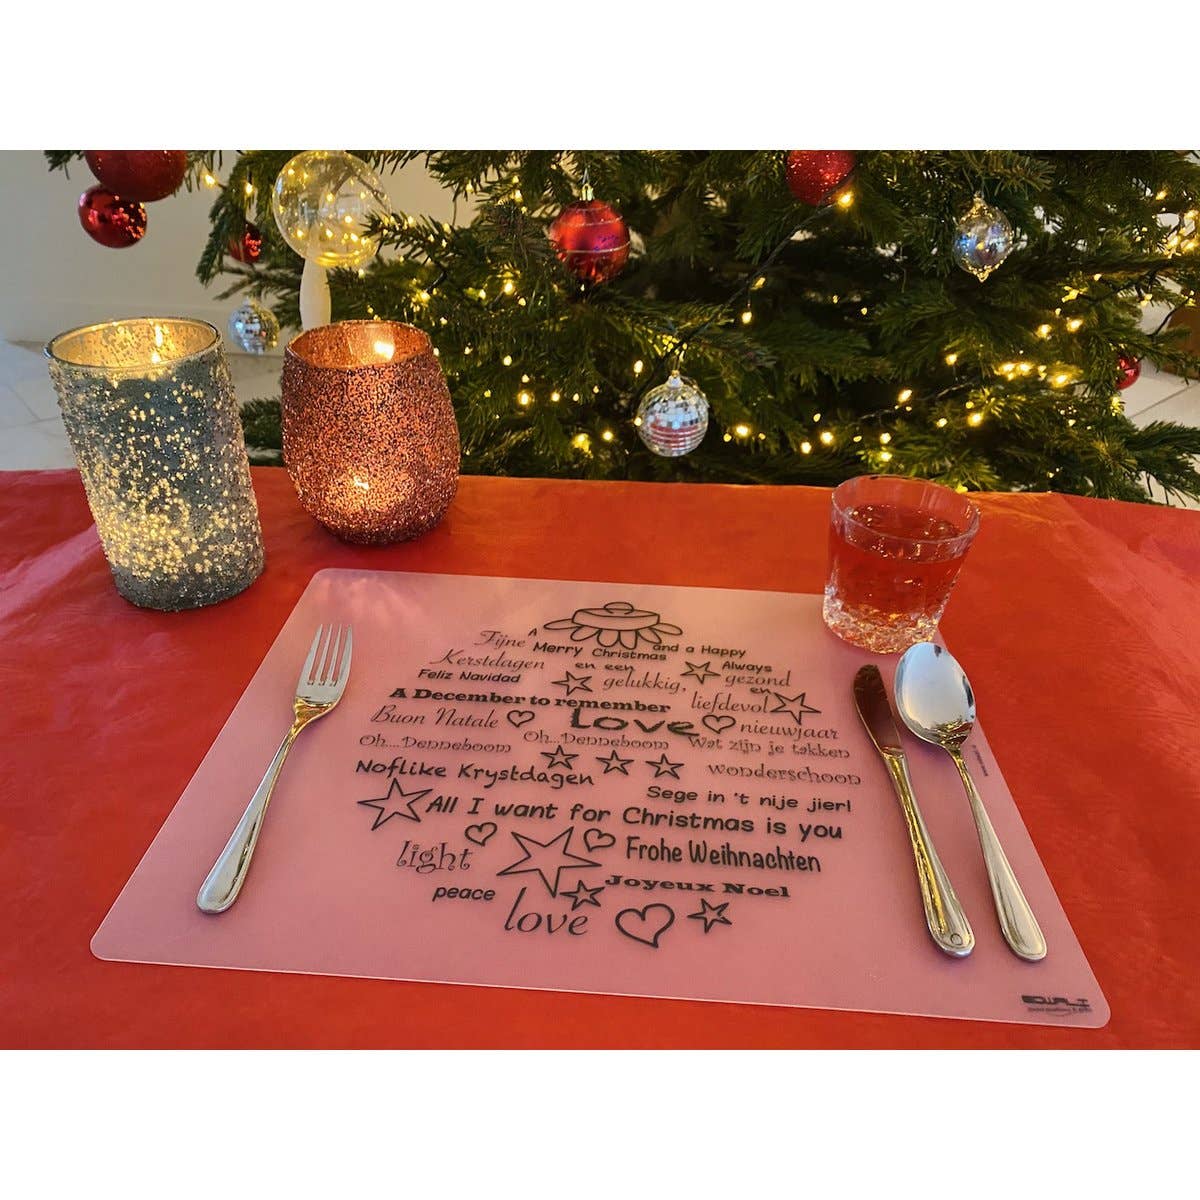 A
Fijne Merry Christmas and a Happy
Kerstdagen en een Always
Feliz Navidad gelukkig, gezond
en
A December to remember liefdevol
Buon Natale Love nieuwjaar
Oh....Denneboom Oh...Denneboom Wat zijn je takken
wonderschoon
Noflike Krystdagen
Sege in 't nije jier!
All I want for Christmas is you
light Frohe Weihnachten
peace Joyeux Noel
love